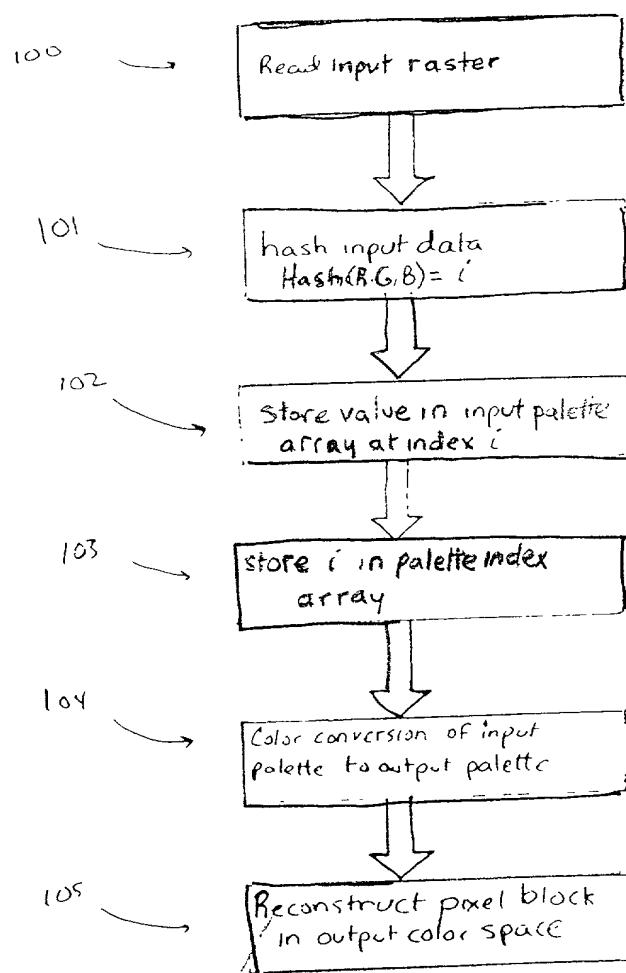 100
Read input raster
101
hash input data
Hash(R.G.B) = i
102
store value in input palette
array at index i
103
store i in palette index
array
104
Color conversion of input
palette to output palette
105
Reconstruct pixel block
in output color space